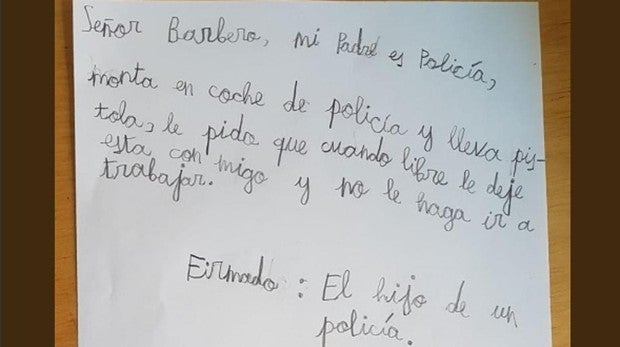 Señor Barbero, mi Padre es Policía,
monta en coche de policía y lleva pis-
tola, le pido que cuando libre le deje
esta con migo y no le haga ir a
trabajar.
Firmado: El hijo de un
policía.